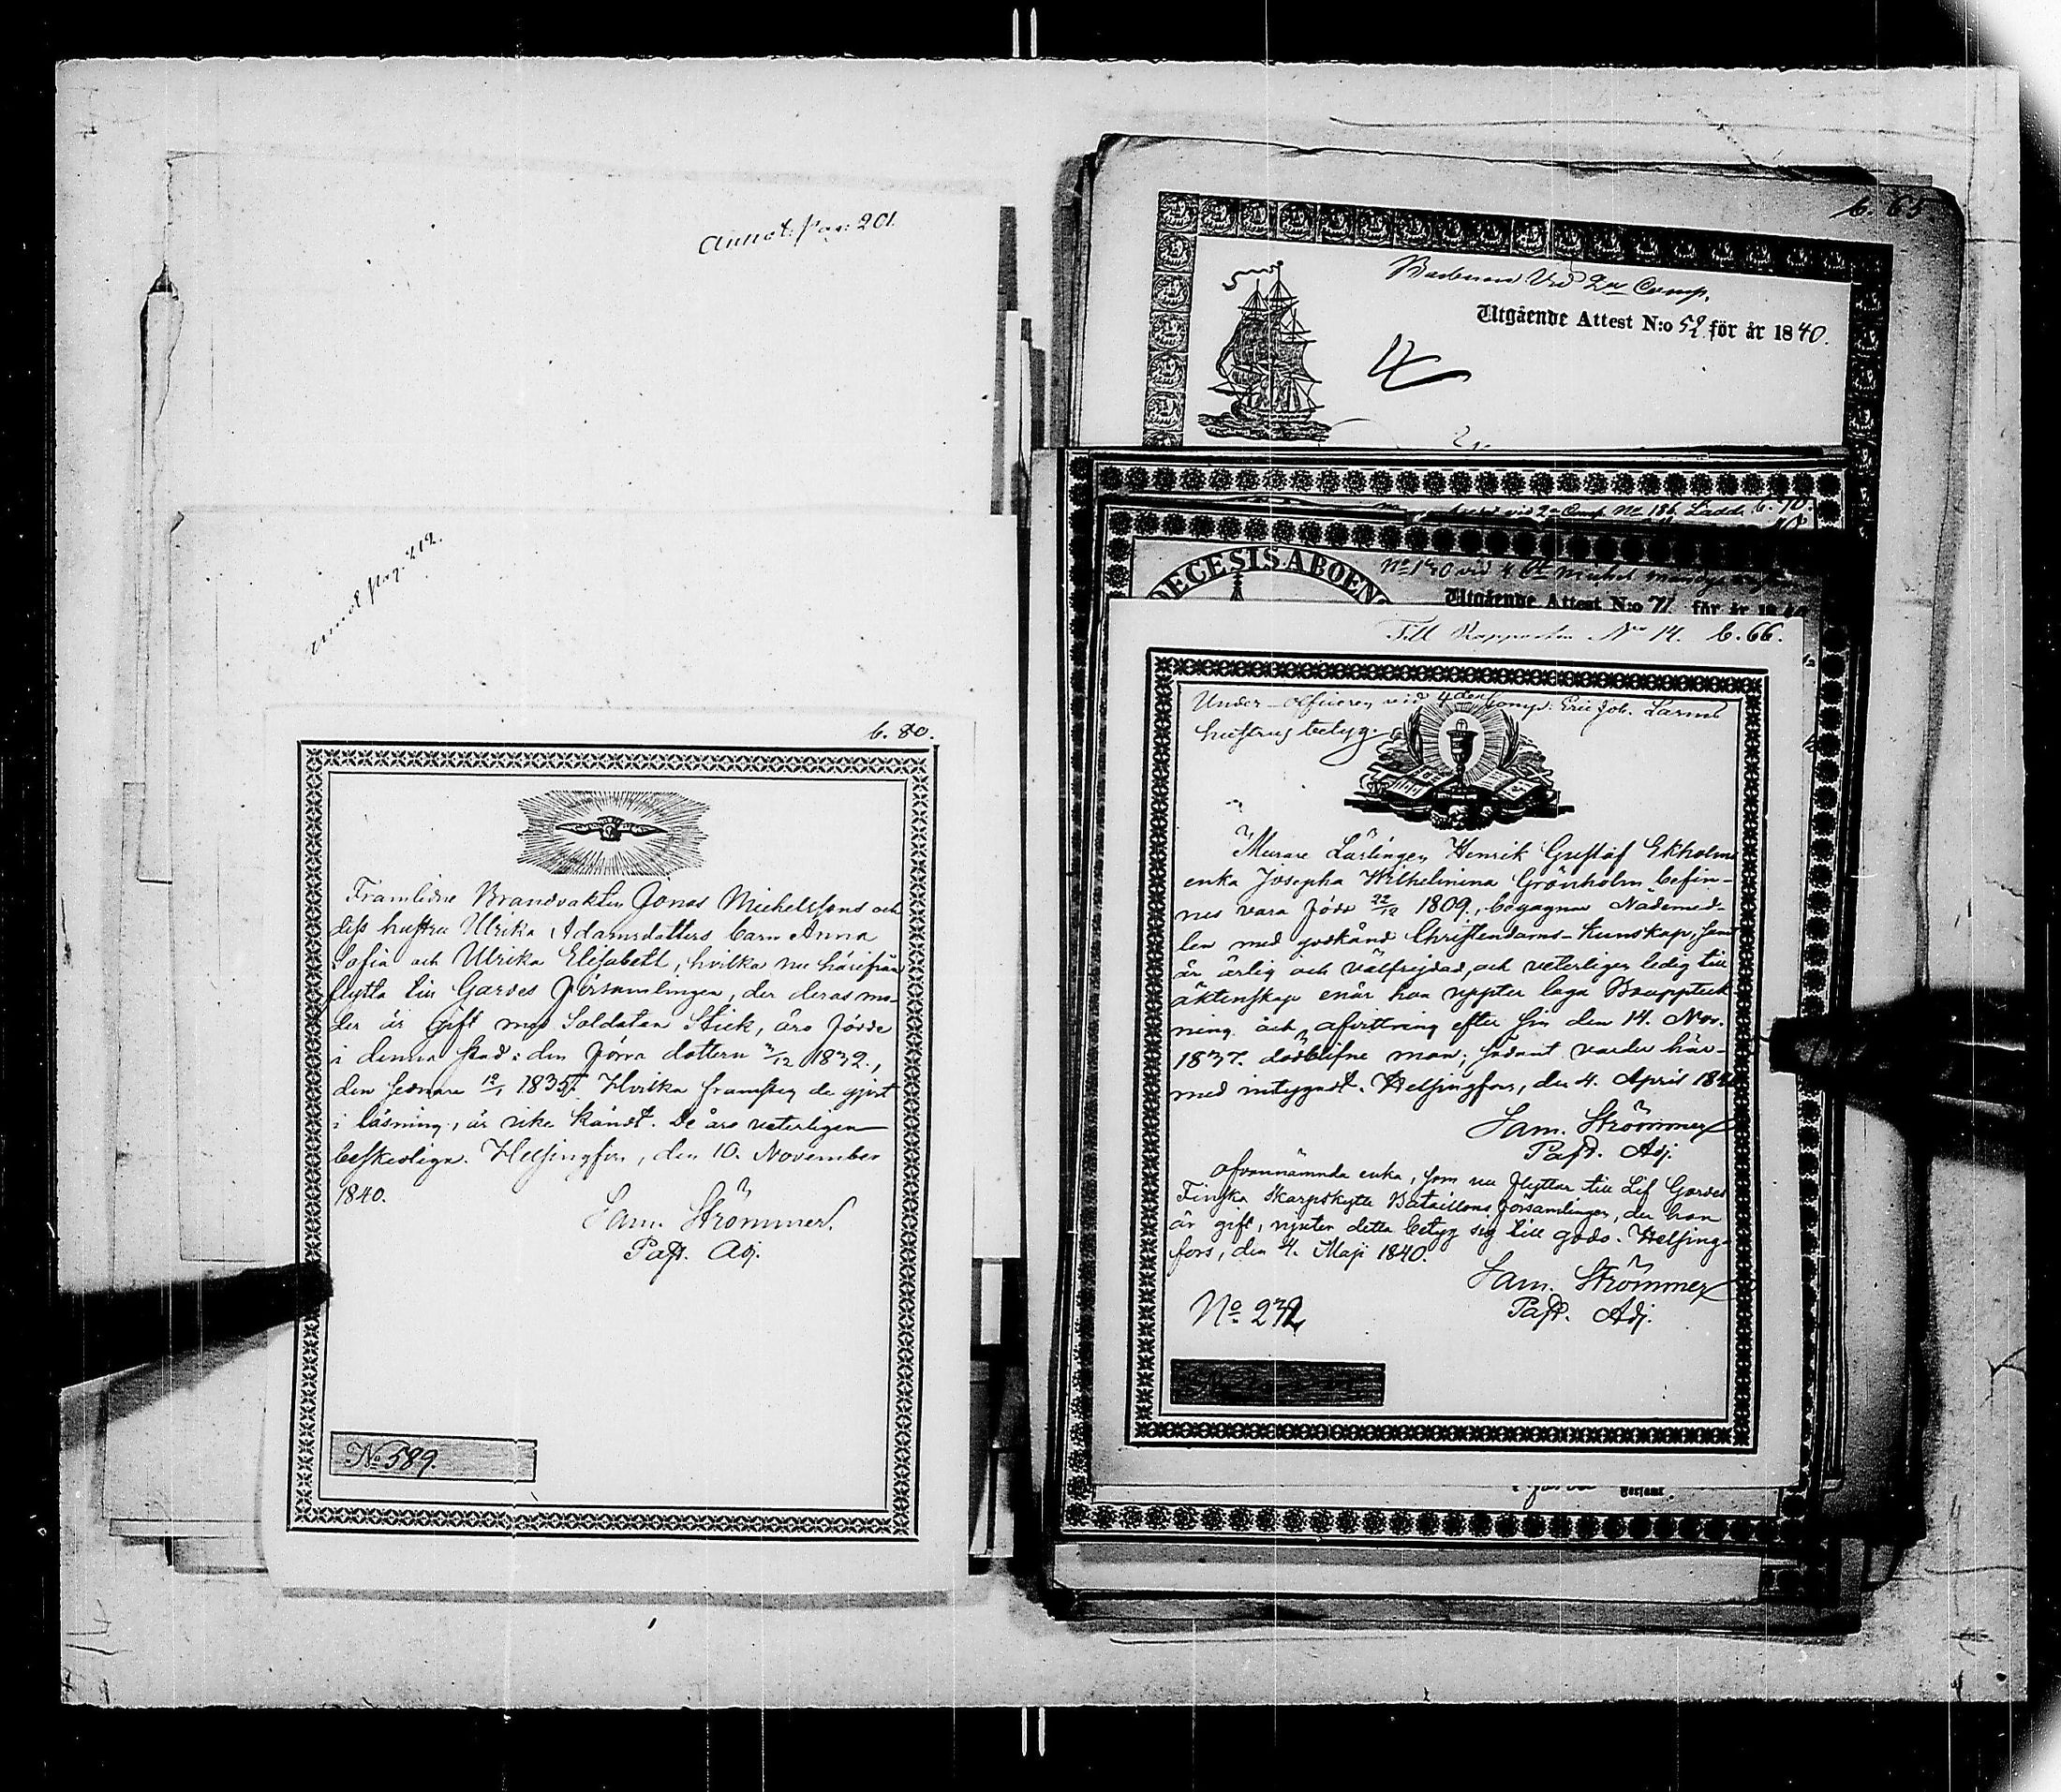 Annot: pag: 201.
Annot pag. 212.
b. 80.
Framlidne Brandvakten Jonas Michelssons och
dess hustru Ulrika Adamsdotters barn Anna
Sofia och Ulrika Elisabeth, hvilka nu härifrån
flytta till Gardes Församlingen, der deras mo-
der är gift med Soldaten Stick, äro födde
i denna stad: den förra dottern 3/12 1832.,
den sednare 19/1 1835. Hvilka framsteg de gjort
i läsning, är icke kändt. De äro veterligen
beskedliga. Helsingfors, den 10. November
1840.
Sam. Strömmer.
Past. Adj.
No 589.
b. 65
vid 2a Comp.
Utgående Attest N:o 52 för år 1840.
vid 2a Comp No 186 Ladd. b. 70.
DIECESIS ABOENS
No 130 vid 4
Utgående Attest N:o 71 för år 1840
Till Rapporten No 14. b. 66.
Under-officeren vid 4de Comp: Eric Joh. Larms
hustrus betyg.
Murare Lärlingen Henrik Gustaf Ekholms
enka Josepha Wilhelmina Grönholm befin-
nes vara född 22/12 1809., begagnar Nådemed-
len med godkänd Christendoms-kunskap, samt
är ärlig och välfrejdad, och veterligen ledig till
äktenskap enär hon uppter laga Bouppteck
ning och afvittring efter sin den 14. Nov.
1837. dödblifne man; sådant varder här-
med intygadt. Helsingfors, den 4. April 1840
Sam. Strömmer
Past. Adj.
Ofvannämnda enka, som nu flyttar till Lif Gardes
Finska Skarpskytte Bataillons församlingen, der hon
är gift, njuter detta betyg sig till godo. Helsing-
fors, den 4. Maji 1840.
Sam. Strömmer
Past. Adj.
No 232